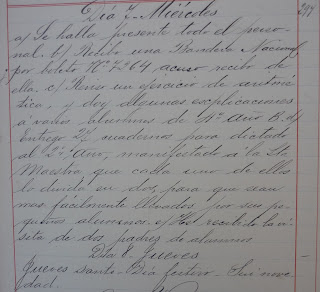 Día 7. Miércoles
a) Se halla presente todo el perso-
nal. b) Recibo una Bandera Nacional
por boleto Nº 7264, acuso recibo de
ella. c) Reviso un ejercicio de aritmé-
tica, y doy algunas explicaciones
a varios alumnos de 4º año B. d)
Entrego 24 cuadernos para dictado
al 2º año, manifestado a la Sta.
Maestra que cada uno de ellos
lo divida en dos, para que sean
mas facilmente llevados por sus pe-
queños alumnos. e) He recibido la vi-
sita de dos padres de alumnos.
Día 8. Jueves
Jueves Santo. Día festivo. Sin nove-
dad.